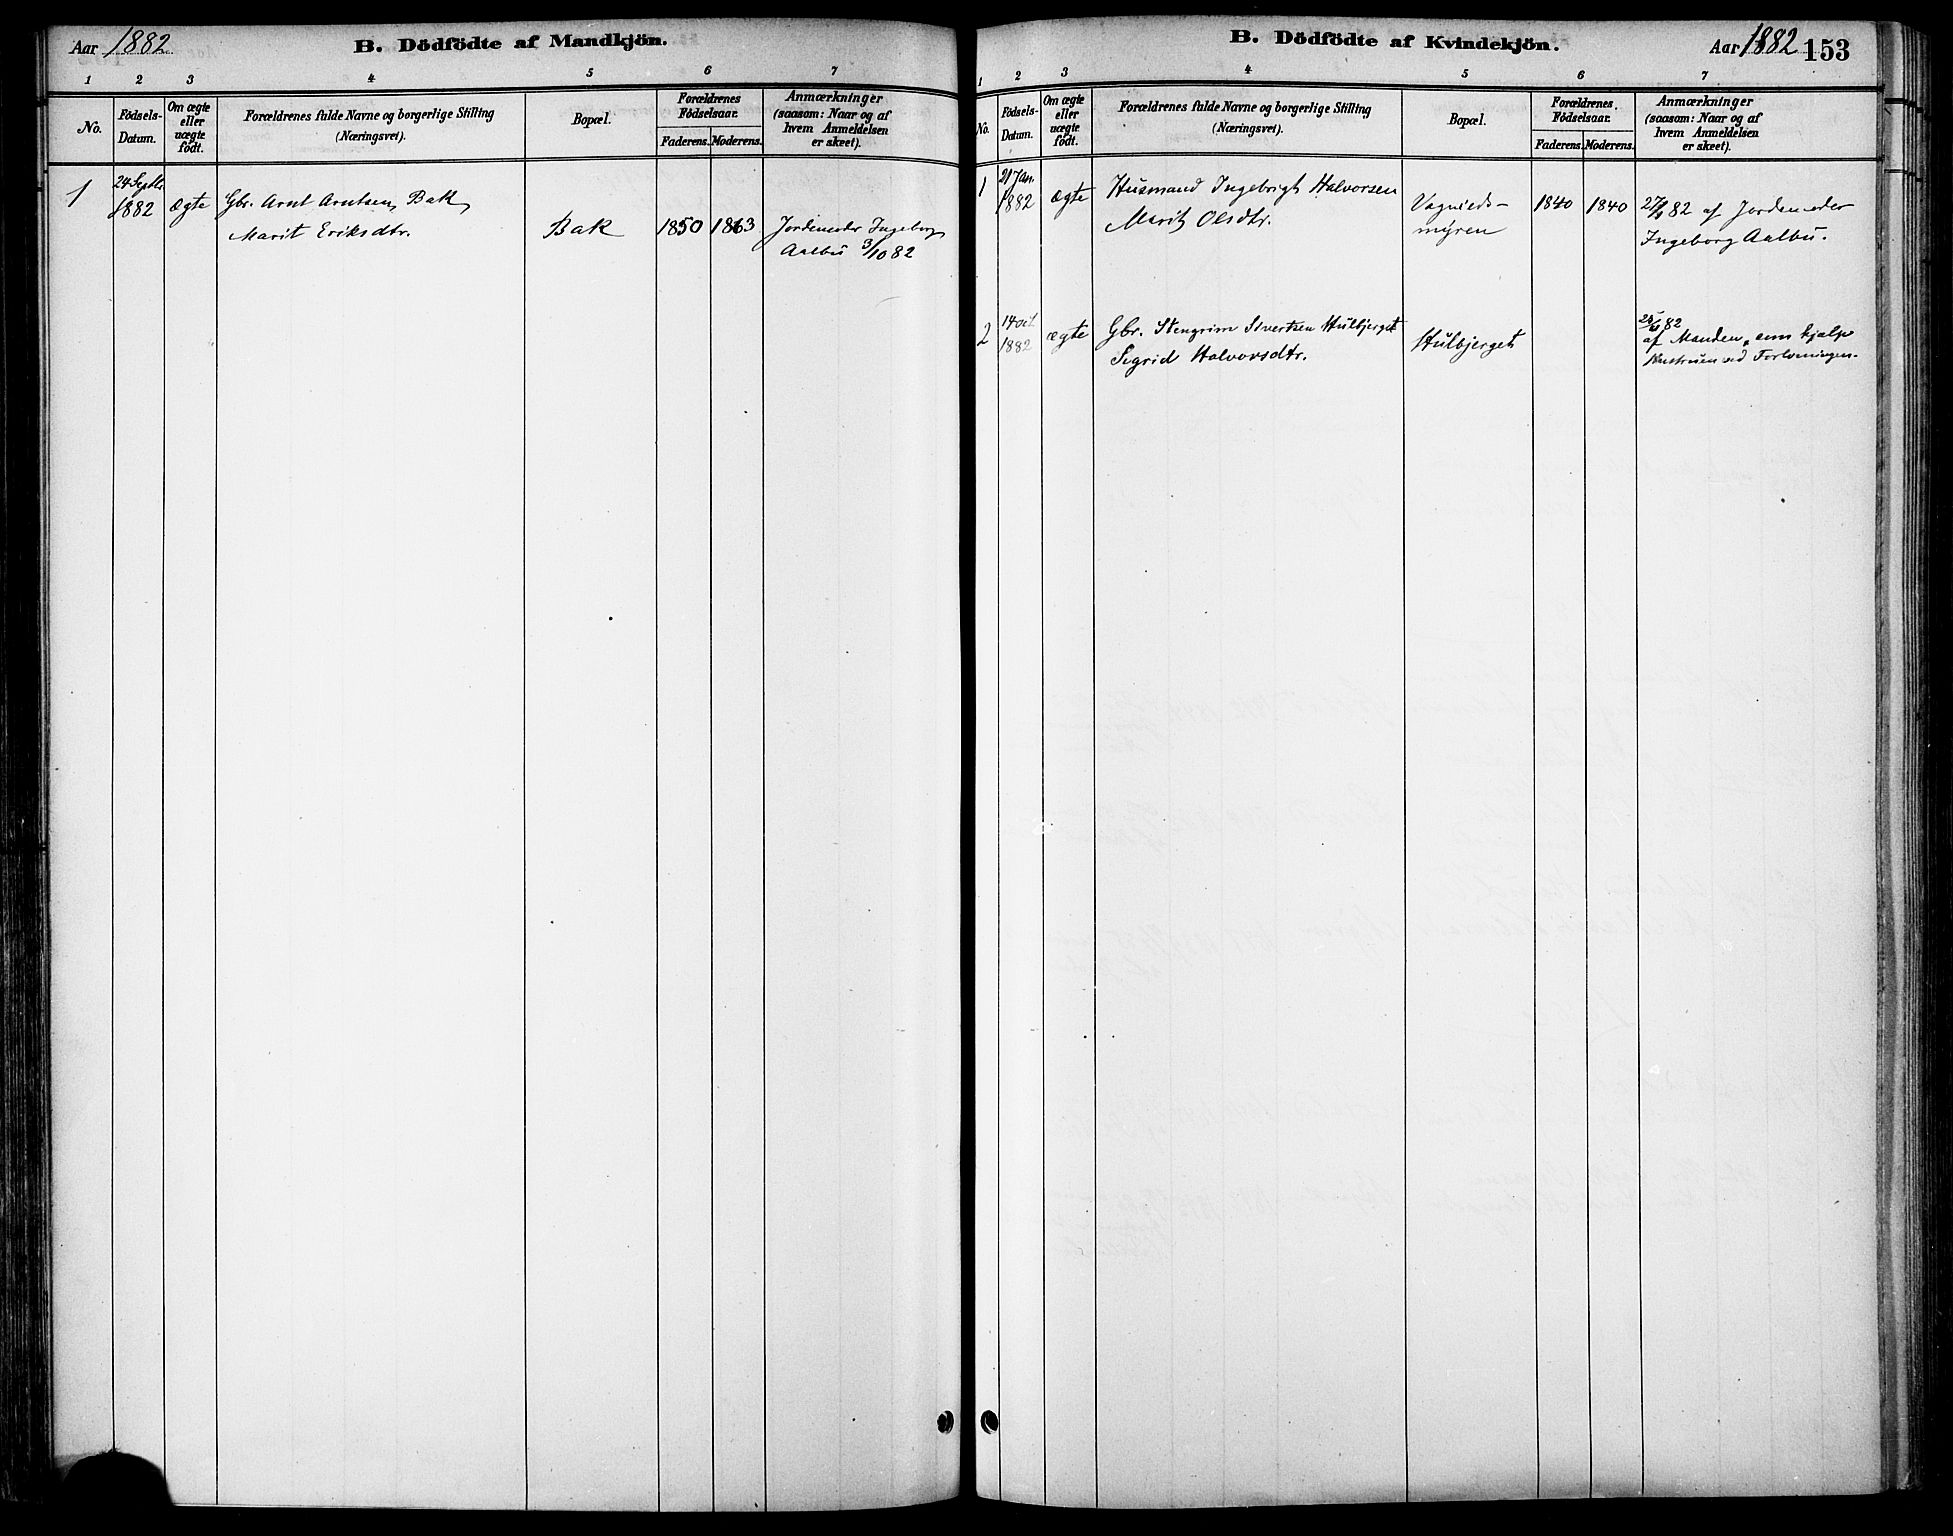 Aar 1882
B. Dödfödte af Mandkjön.
1 2 3 4 5 6 7
No. Födsels-Datum. Om ægte eller uægte födt. Forældrenes fulde Navne og borgerlige Stilling (Næringsvei). Bopæl. Forældrenes Födselsaar. Faderens. Moderens. Anmærkninger (saasom: Naar og af hvem Anmeldelsen er skeet).
1 24 Septbr. Gbr. Arnt Arntsen Bak
1882 Ægte Marit Eriksdtr. Bak 1850 1863 Jordemoder Ingeborg
Aalbu 3/10 82
B. Dödfödte af Kvindekjön.
Aar 1882 153
1 2 3 4 5 6 7
No. Födsels-Datum. Om ægte eller uægte födt. Forældrenes fulde Navne og borgerlige Stilling (Næringsvei). Bopæl. Forældrenes Födselsaar. Faderens. Moderens. Anmærkninger (saasom: Naar og af hvem Anmeldelsen er skeet).
1 21 Jan. Husmand Ingebrigt Halvorsen
1882 Ægte Marit Olsdtr. 1840 1840 27/1 82 af Jordemoder
myren Ingeborg Aalbu.
2 14 Oct. ægte Gbr. Stengrim Sivertsen Hulbjerget
1882 Sigrid Halvorsdtr. Hulbjerget 82
af Manden, som hjalp
ved Forløsningen.